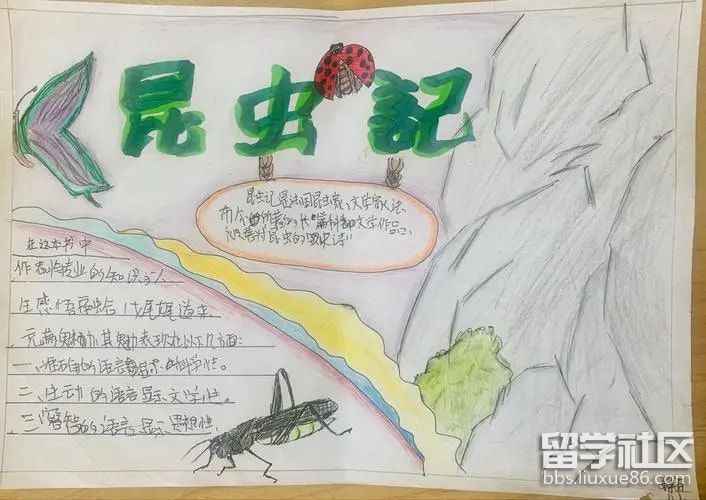 昆虫記
昆虫记是法国昆虫家、文学家法
布尔所著的长篇科普文学作品,
被誉为昆虫的史诗!!
在这本书中
作者将专业的知识与人
生感悟
充满魅力,其魅力表现在以下几方面:
一、
的语言显示科学性。
二、生动的语言显示文学性。
三、睿智的语言显示思想性。
留学社区
bbs.liuxue86.com